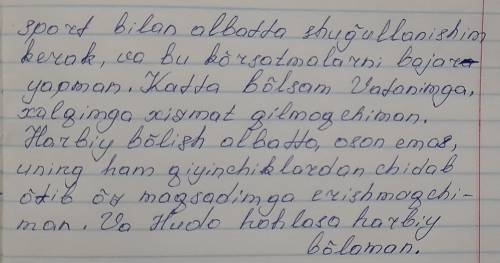 sport bilan albatta shuğullanishim
kerak, va bu kõrsatmalarni bajara
yapman. Katta bõlsam Vatanimga,
xalqimga xizmat qilmoqchiman.
Harbiy bõlish albatta, oson emas,
uning ham qiyinchiklardan chidab
õtib õz maqsadimga erishmoqchi-
man. Va Hudo hohlasa harbiy
bõlaman.